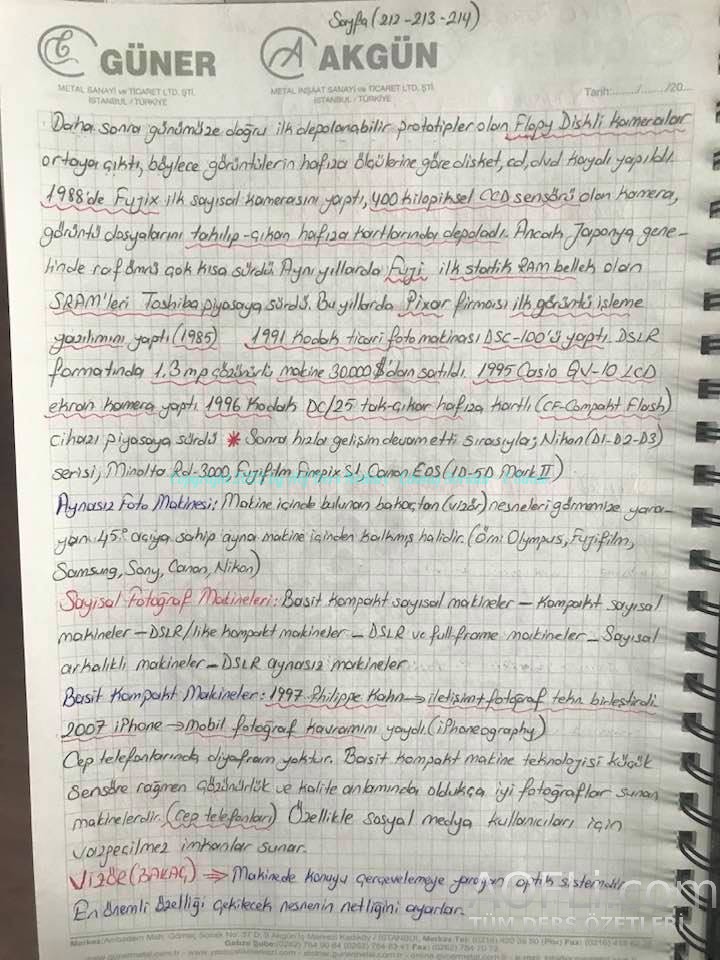 Sayfa (212-213-214)
GÜNER AKGÜN
METAL SANAYİ ve TİCARET LTD. ŞTİ. METAL İNŞAAT SANAYİ ve TİCARET LTD. ŞTİ.
İSTANBUL / TÜRKİYE İSTANBUL / TÜRKİYE
Tarih:....../....../20....
Daha sonra günümüze doğru ilk depolanabilir prototipler olan Flopy Diskli kameralar
ortaya çıktı, böylece görüntülerin hafıza ölçülerine göre disket, cd, dvd kaydı yapıldı.
1988'de Fujix ilk sayısal kamerasını yaptı, 400 kilopiksel CCD sensörü olan kamera,
görüntü dosyalarını takılıp-çıkan hafıza kartlarında depoladı. Ancak Japonya gene-
linde raf ömrü çok kısa sürdü. Aynı yıllarda Fuji ilk statik RAM bellek olan
SRAM'leri Toshiba piyasaya sürdü. Bu yıllarda Pixar firması ilk görüntü işleme
yazılımını yaptı (1985) 1991 Kodak ticari foto makinası DSC-100'ü yaptı. DSLR
formatında 1.3 mp çözünürlü makine 30.000 $'dan satıldı. 1995 Casio QV-10 LCD
ekran kamera yaptı 1996 Kodak DC/25 tak-çıkar hafıza kartlı (CF-Compakt Flash)
cihazı piyasaya sürdü * Sonra hızla gelişim devam etti sırasıyla; Nikon (D1-D2-D3)
serisi, Minolta Rd-3000, Fujifilm Finepix S1, Canon EOS (1D-5D Mark II)
Aynasız Foto Makinesi: Makine içinde bulunan bakaçtan (vizör) nesneleri görmemize yara-
yan 45° açıya sahip ayna makine içinden kalkmış halidir. (Örn: Olympus, Fujifilm,
Samsung, Sony, Canon, Nikon)
Sayısal Fotoğraf Makineleri: Basit kompakt sayısal makineler – Kompakt sayısal
makineler – DSLR/like kompakt makineler – DSLR ve full-frame makineler – Sayısal
arkalıklı makineler – DSLR aynasız makineler
Basit Kompakt Makineler: 1997 Philippe Kahn → iletişim + fotoğraf tekn. birleştirdi.
2007 iPhone → Mobil fotoğraf kavramını yaydı. (iPhoneography)
Cep telefonlarında diyafram yoktur. Basit kompakt makine teknolojisi küçük
sensöre rağmen çözünürlük ve kalite anlamında oldukça iyi fotoğraflar sunan
makinelerdir. (cep telefonları) Özellikle sosyal medya kullanıcıları için
vazgeçilmez imkanlar sunar.
VİZÖR (BAKAÇ) ⇒ Makinede konuyu çerçevelemeye yarayan optik sistemdir.
En önemli özelliği çekilecek nesnenin netliğini ayarlar.
AOFLi.com
TÜM DERS ÖZETLERİ